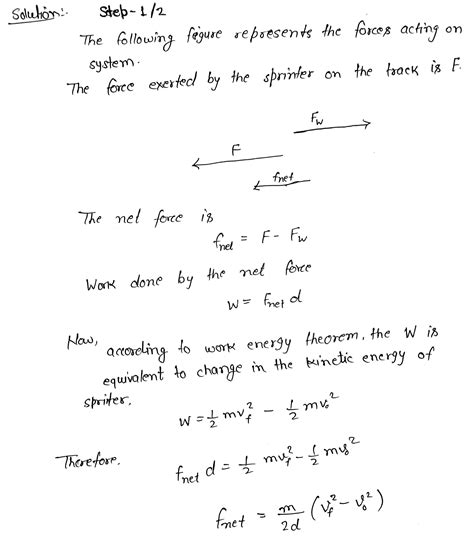 Solution:- Step-1/2
The following figure represents the forces acting on
system.
The force exerted by the sprinter on the track is F.
F_w
F
f_net
The net force is
f_net = F - F_w
Work done by the net force
W = f_net d
Now,
according to work energy theorem, the W is
equivalent to change in the kinetic energy of
spriter.
W = 1/2 mv_f^2 - 1/2 mv_o^2
Therefore,
f_net d = 1/2 mv_f^2 - 1/2 mv_o^2
f_net = m/2d (v_f^2 - v_o^2)